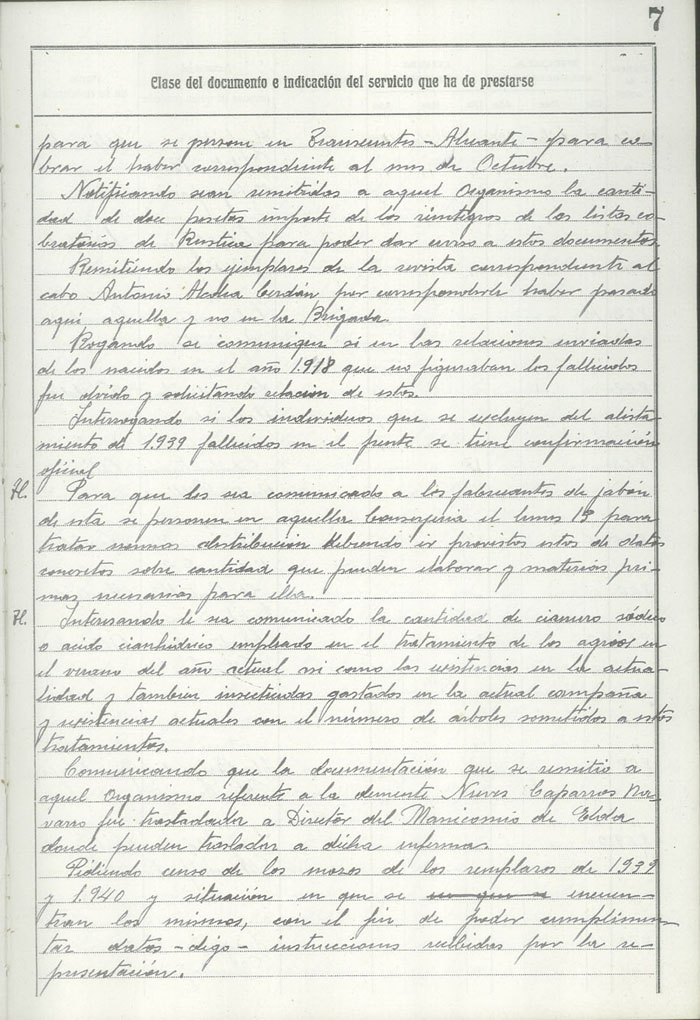 7
Clase del documento e indicación del servicio que ha de prestarse
para que se persone en Transeuntes - Alicante - para co-
brar el haber correspondiente al mes de Octubre.
Notificando sean remitidas a aquel Organismo la canti-
dad de doce pesetas importe de los reintegros de las listas co-
bratorias de Rustica para poder dar curso a estos documentos.
Remitiendo los ejemplares de la revista correspondiente al
cabo Antonio Alcolea Cerdán por corresponderle haber pasado
aqui aquella y no en la Brigada.
Rogando se comunique si en las relaciones enviadas
de los nacidos en el año 1.918 que no figuraban los fallecidos
fue olvido y solicitando relación de estos.
Interrogando si los individuos que se excluyen del alista-
miento de 1.939 fallecidos en el frente se tiene confirmación
oficial
H. Para que les sea comunicado a los fabricantes de jabón
de esta se personen en aquella Conserjeria el lunes 13 para
tratar normas distribución debiendo ir provistos estos de datos
concretos sobre cantidad que pueden elaborar y materias pri-
mas necesarias para ella.
H. Interesando le sea comunicado la cantidad de cianuro sódico
o acido cianhidrico empleado en el tratamiento de los agrios en
el verano del año actual asi como las existencias en la actua-
lidad y tambien insecticidas gastados en la actual campaña
y existencias actuales con el número de árboles sometidos a estos
tratamientos.
Comunicando que la documentación que se remitio a
aquel Organismo referente a la demente Nieves Caparros Na-
varro fue trasladada a Director del Manicomio de Elda
donde pueden trasladar a dicha enferma.
Pidiendo censo de los mozos de los remplazos de 1939
y 1.940 y situación en que se en que se encuen-
tran los mismos, con el fin de poder cumplimen-
tar datos - digo - instrucciones recibidas por la re-
presentación.